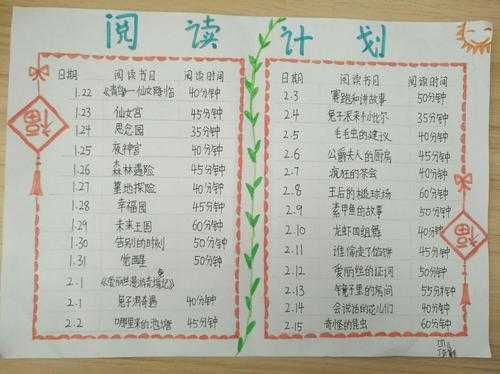 阅 读 计 划
日期 阅读书目 阅读时间
1.22 仙女降临 40分钟
1.23 仙女宫 45分钟
1.24 思念园 35分钟
1.25 夜神宫 40分钟
1.26 森林遇险 45分钟
1.27 墓地探险 40分钟
1.28 幸福园 45分钟
1.29 未来王国 60分钟
1.30 告别的时刻 50分钟
1.31 觉醒 50分钟
2.1 《爱丽丝漫游奇境记》
2.1 兔子洞奇遇 40分钟
2.2 哪里来的泡塘 45分钟
福
日期 阅读书目 阅读时间
2.3 赛跑和讲故事 50分钟
2.4 兔子派来小比尔 35分钟
2.5 毛毛虫的建议 40分钟
2.6 公爵夫人的厨房 45分钟
2.7 疯狂的茶会 40分钟
2.8 王后的槌球场 60分钟
2.9 素甲鱼的故事 50分钟
2.10 龙虾四组舞 40分钟
2.11 谁偷走了馅饼 45分钟
2.12 爱丽丝的证词 50分钟
2.13 镜子里的房间 55分钟
2.14 会说话的花儿们 40分钟
2.15 奇怪的昆虫 60分钟
福